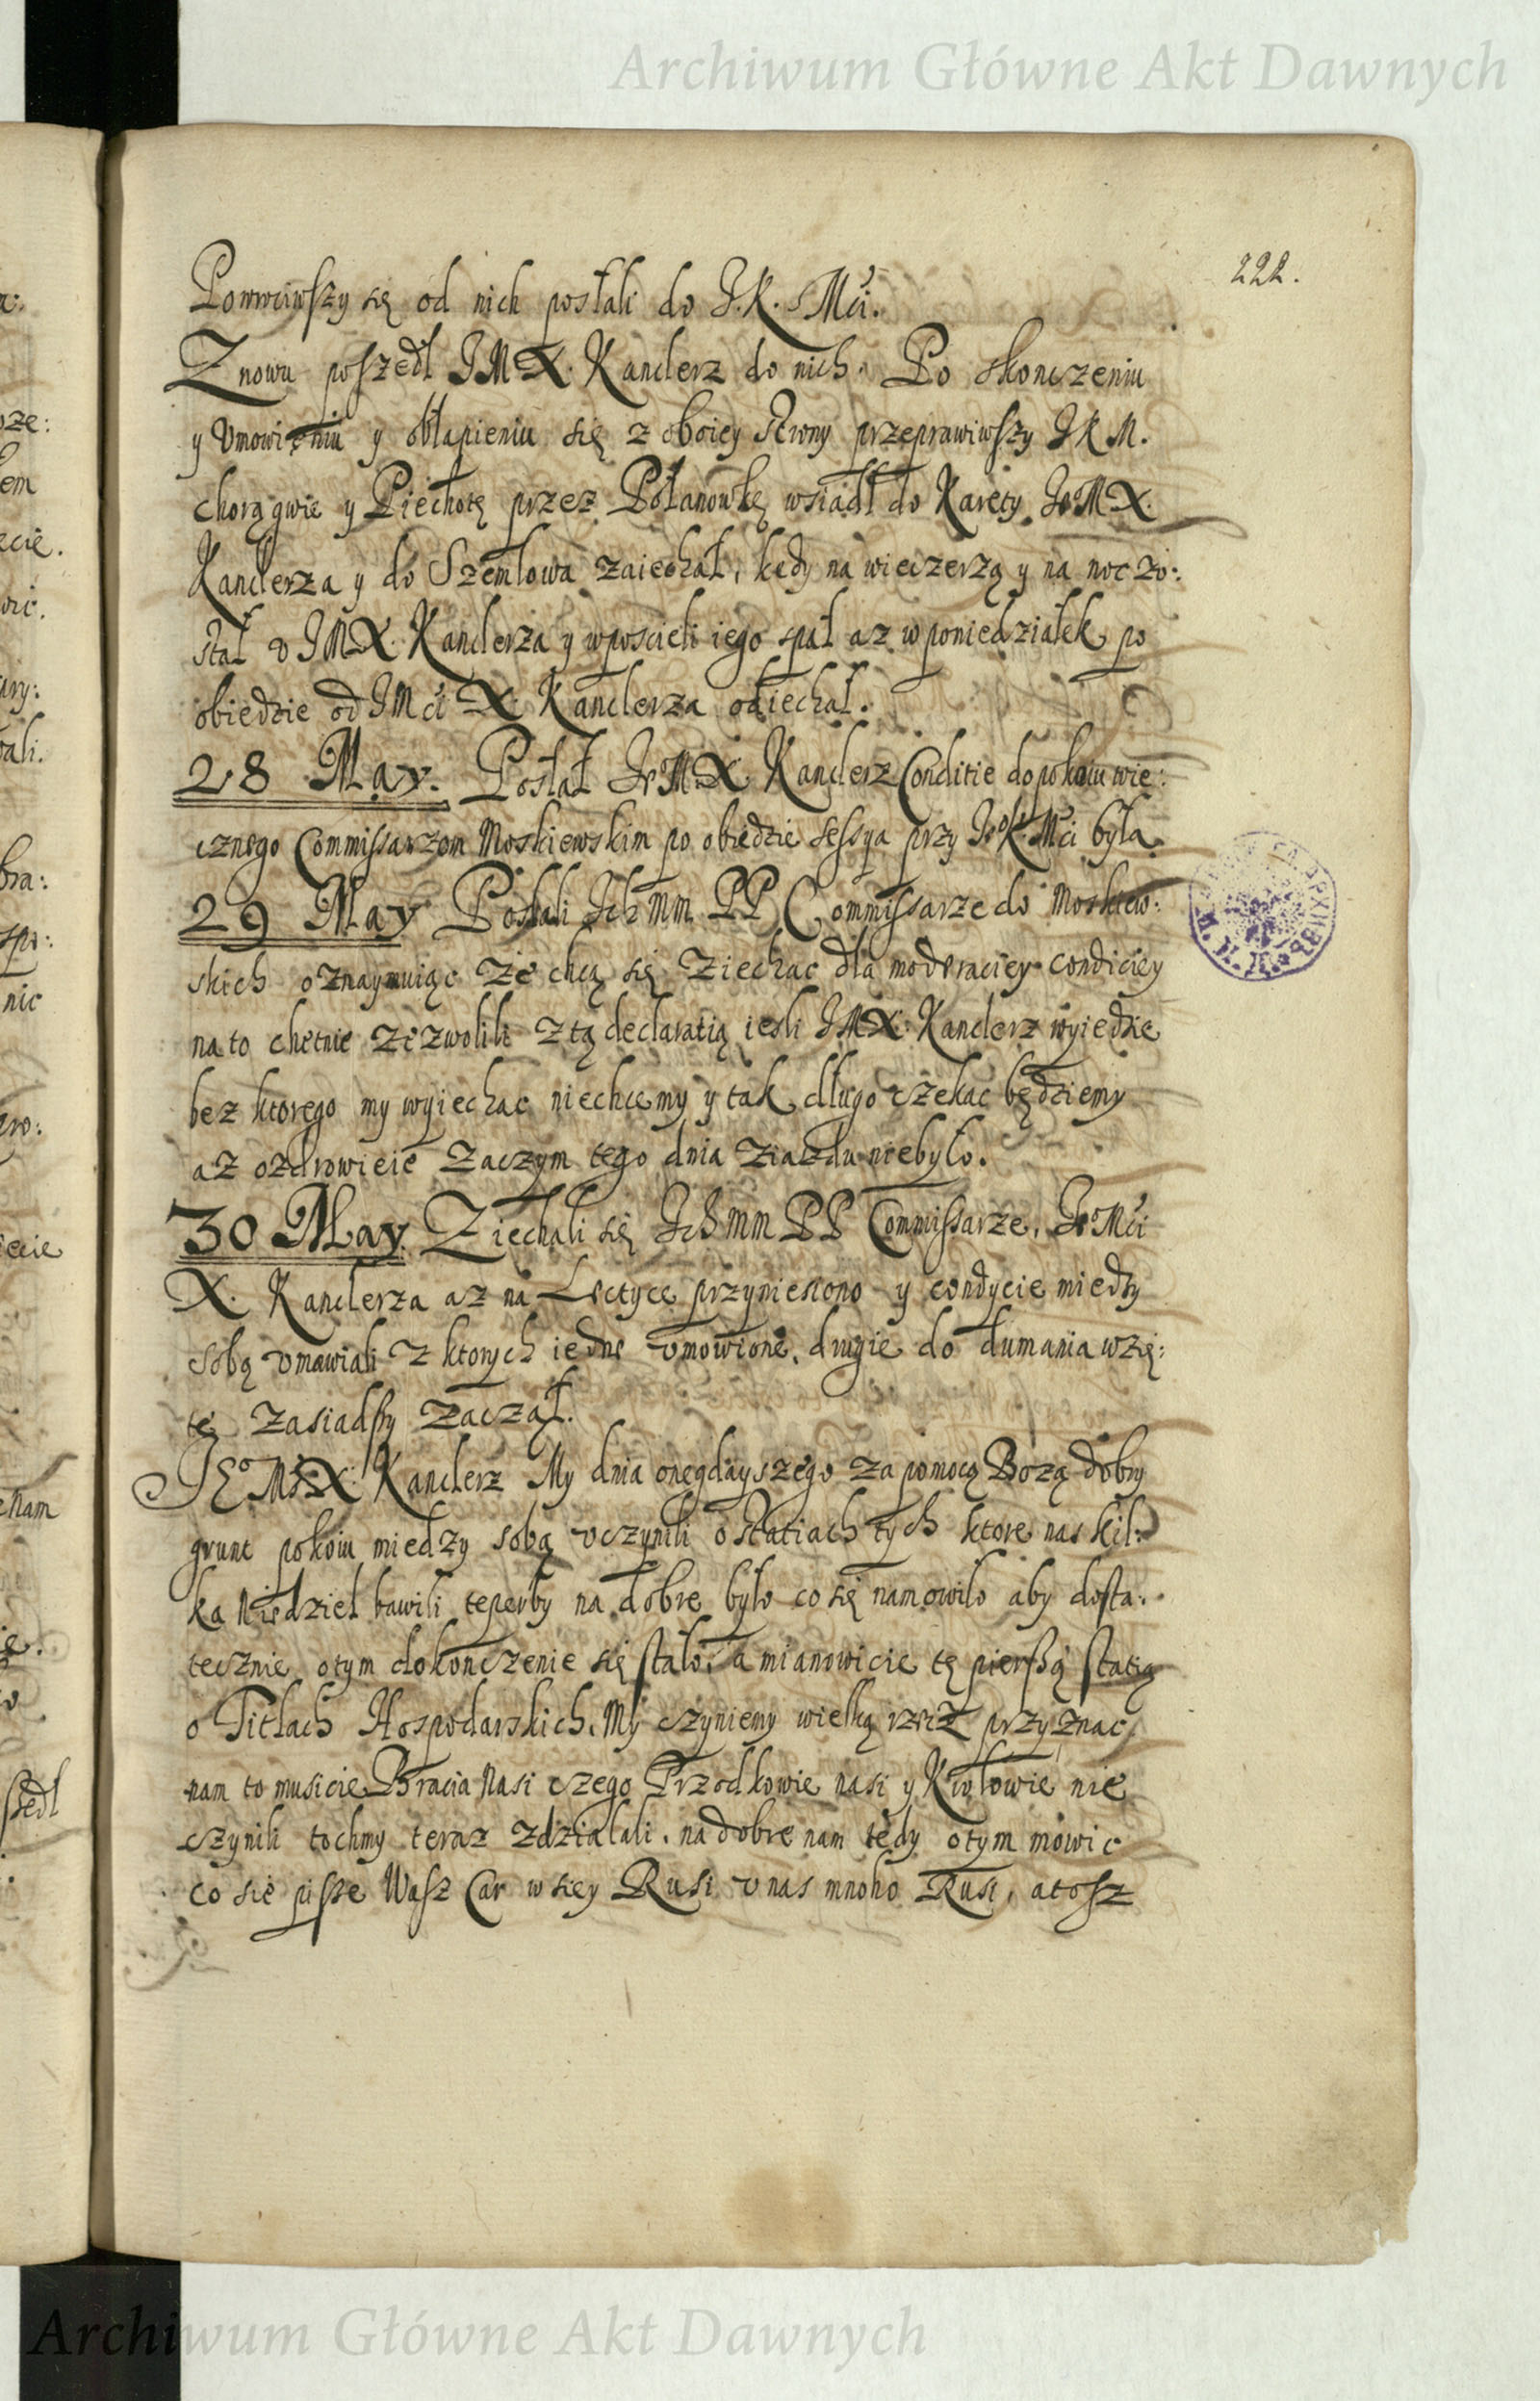 Archiwum Główne Akt Dawnych
222.
Powrociwszy się od nich posłali do J.K. Mći.
Znowu poszedł JMX. Kanclerz do nich. Po skonczeniu
y Vmowieniu y obłapieniu się z oboiey strony przeprawiwszy JKM.
chorągwie y Piechotę przez Polanowkę wsiadł do Karety JoMX.
Kanclerza y do Szemlowa zaiechał, kędy na wieczerzą y na noc zo:
stał v JMX. Kanclerza y wposcieli iego spał az w poniedziałek po
obiedzie od JMći X. Kanclerza odiechał.
28 May. Posłał JeMX. Kanclerz Conditie do pokoiu wie:
cznego Commissarzom Moskiewskim po obiedzie sessya przy JoKMći była
29 May Posłali Ich mm PP Commissarze do Moskiew:
skich oznaymuiąc że chcą się ziechac dla moderaciey condiciey
na to chetnie zezwolili z tą declaratią iesli JMX. Kanclerz wyiedzie
bez ktorego my wyiechac niechcemy y tak długo czekac będziemy
az ozdrowieie zaczym tego dnia ziazdu niebyło.
30 May. Ziechali się Ich mm PP Commissarze. JeoMći
X. Kanclerza az na Lectyce przyniesiono y condycie miedzy
sobą vmawiali z ktorych iedne vmowione, drugie do dumania wzię:
te zasiadszy zaczął.
JEo Mś X. Kanclerz My dnia onegdayszego za pomocą Bozą dobry
grunt pokoiu miedzy sobą vczynili o statiach tych ktore nas kil:
ka Niedziel bawili teperby na dobre było co się namowiło aby dosta:
tecznie otym dokonczenie się stało, a mianowicie tę pierszą statią
o Titłach Hospodarskich. My czyniemy wielką rzecz przyznac
nam to musicie Bracia Nasi czego Przodkowie nasi y Krolowie nie
czynili tochmy teraz zdziałali. na dobre nam tedy otym mowic
co sie pisze Wasz Car wsiey Rusi v nas mnoho Rusi, a tosz
Archiwum Główne Akt Dawnych